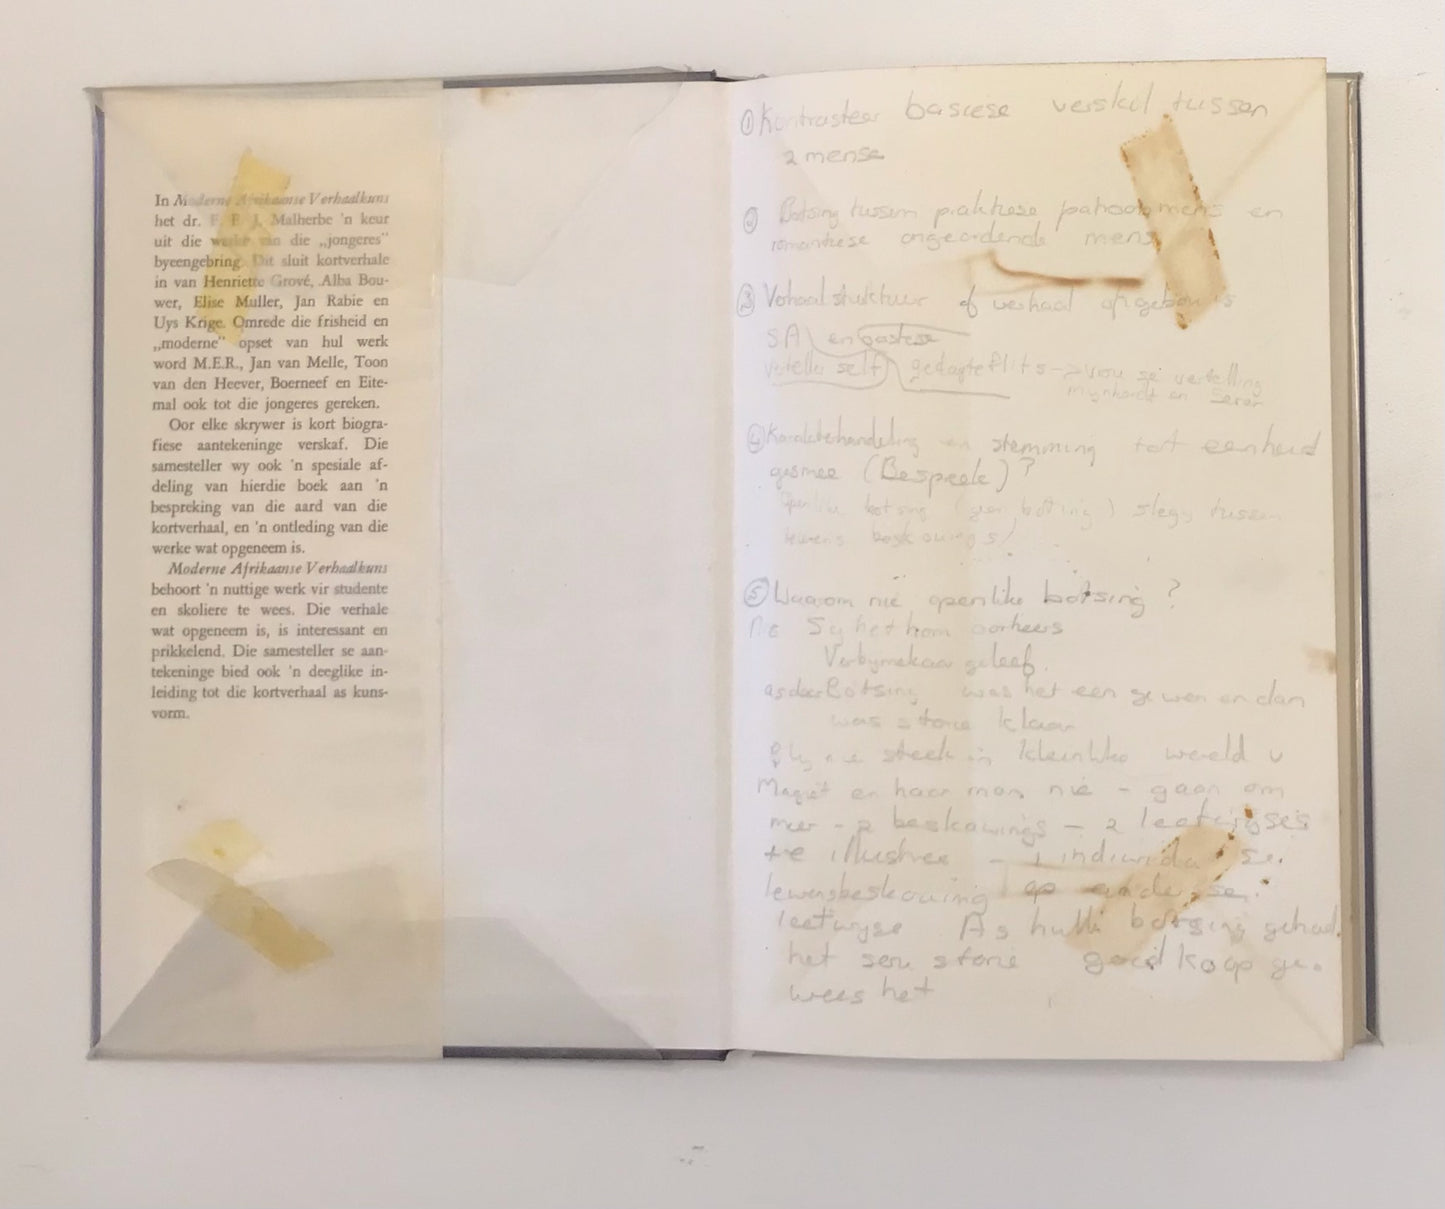 In Moderne Afrikaanse Verhaalkuns
het dr. F. E. J. Malherbe 'n keur
uit die werke van die „jongeres”
byeengebring. Dit sluit kortverhale
in van Henriette Grové, Alba Bou-
wer, Elise Muller, Jan Rabie en
Uys Krige. Omrede die frisheid en
„moderne” opset van hul werk
word M.E.R., Jan van Melle, Toon
van den Heever, Boerneef en Eite-
mal ook tot die jongeres gereken.
Oor elke skrywer is kort biogra-
fiese aantekeninge verskaf. Die
samesteller wy ook 'n spesiale af-
deling van hierdie boek aan 'n
bespreking van die aard van die
kortverhaal, en 'n ontleding van die
werke wat opgeneem is.
Moderne Afrikaanse Verhaalkuns
behoort 'n nuttige werk vir studente
en skoliere te wees. Die verhale
wat opgeneem is, is interessant en
prikkelend. Die samesteller se aan-
tekeninge bied ook 'n deeglike in-
leiding tot die kortverhaal as kuns-
vorm.
① Kontrasteer basiese verskil tussen
2 mense
② Botsing tussen praktiese mens en
romantiese ongeordende mens
③ of verhaal opgebou is
SA en
verteller self gedagteflits → vrou se vertelling
en
④ Karakterhandeling en stemming tot eenheid
gesmee (Bespreek)?
botsing (geen botsing) slegs tussen
lewens beskouings!
⑤ Waarom nie openlike botsing?
Sy het hom oorheers
Verbymekaar geleef.
as daar Botsing was het een gewen en dan
was storie klaar
steek in kleinlike wereld v
en haar man nie - gaan om
meer - 2 beskouings - 2 leefwyses
te illustree - 1 individu se
lewensbeskouing op ander se
leefwyse As hulle botsing gehad
het sou storie goedkoop ge-
wees het